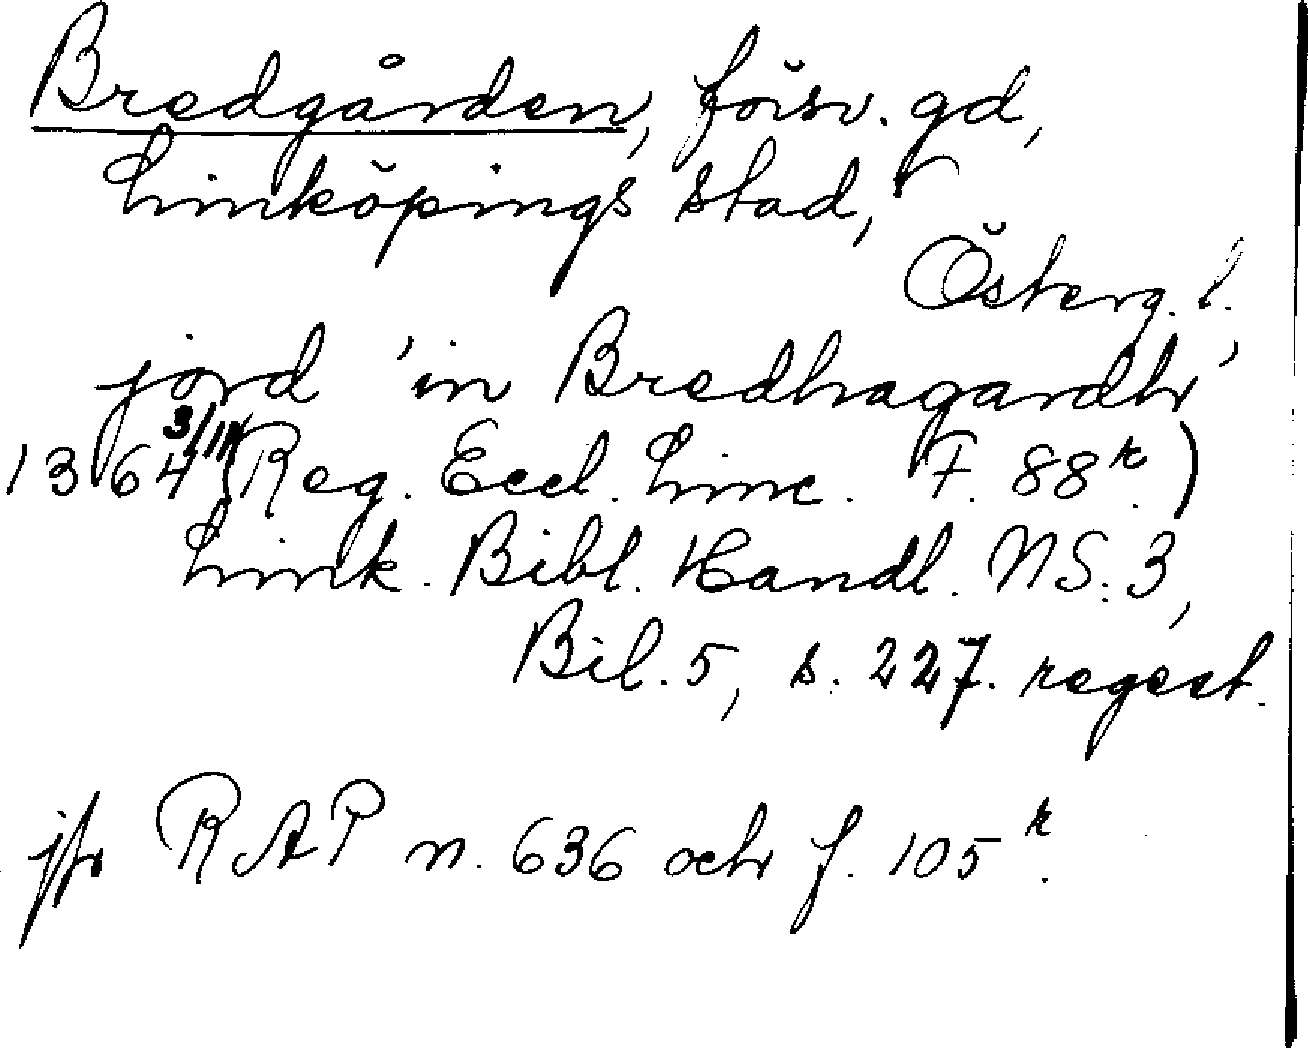 Bredgården, försv. gd,
Linköpings stad,
Österg. l.
jord 'in Bredhagardh'
1364 3/11 (Reg. Eccl. Linc. F. 88r.)
Link. Bibl. Handl. NS. 3,
Bil. 5, s. 227. regest.
jfr RAP n. 636 och f. 105r.